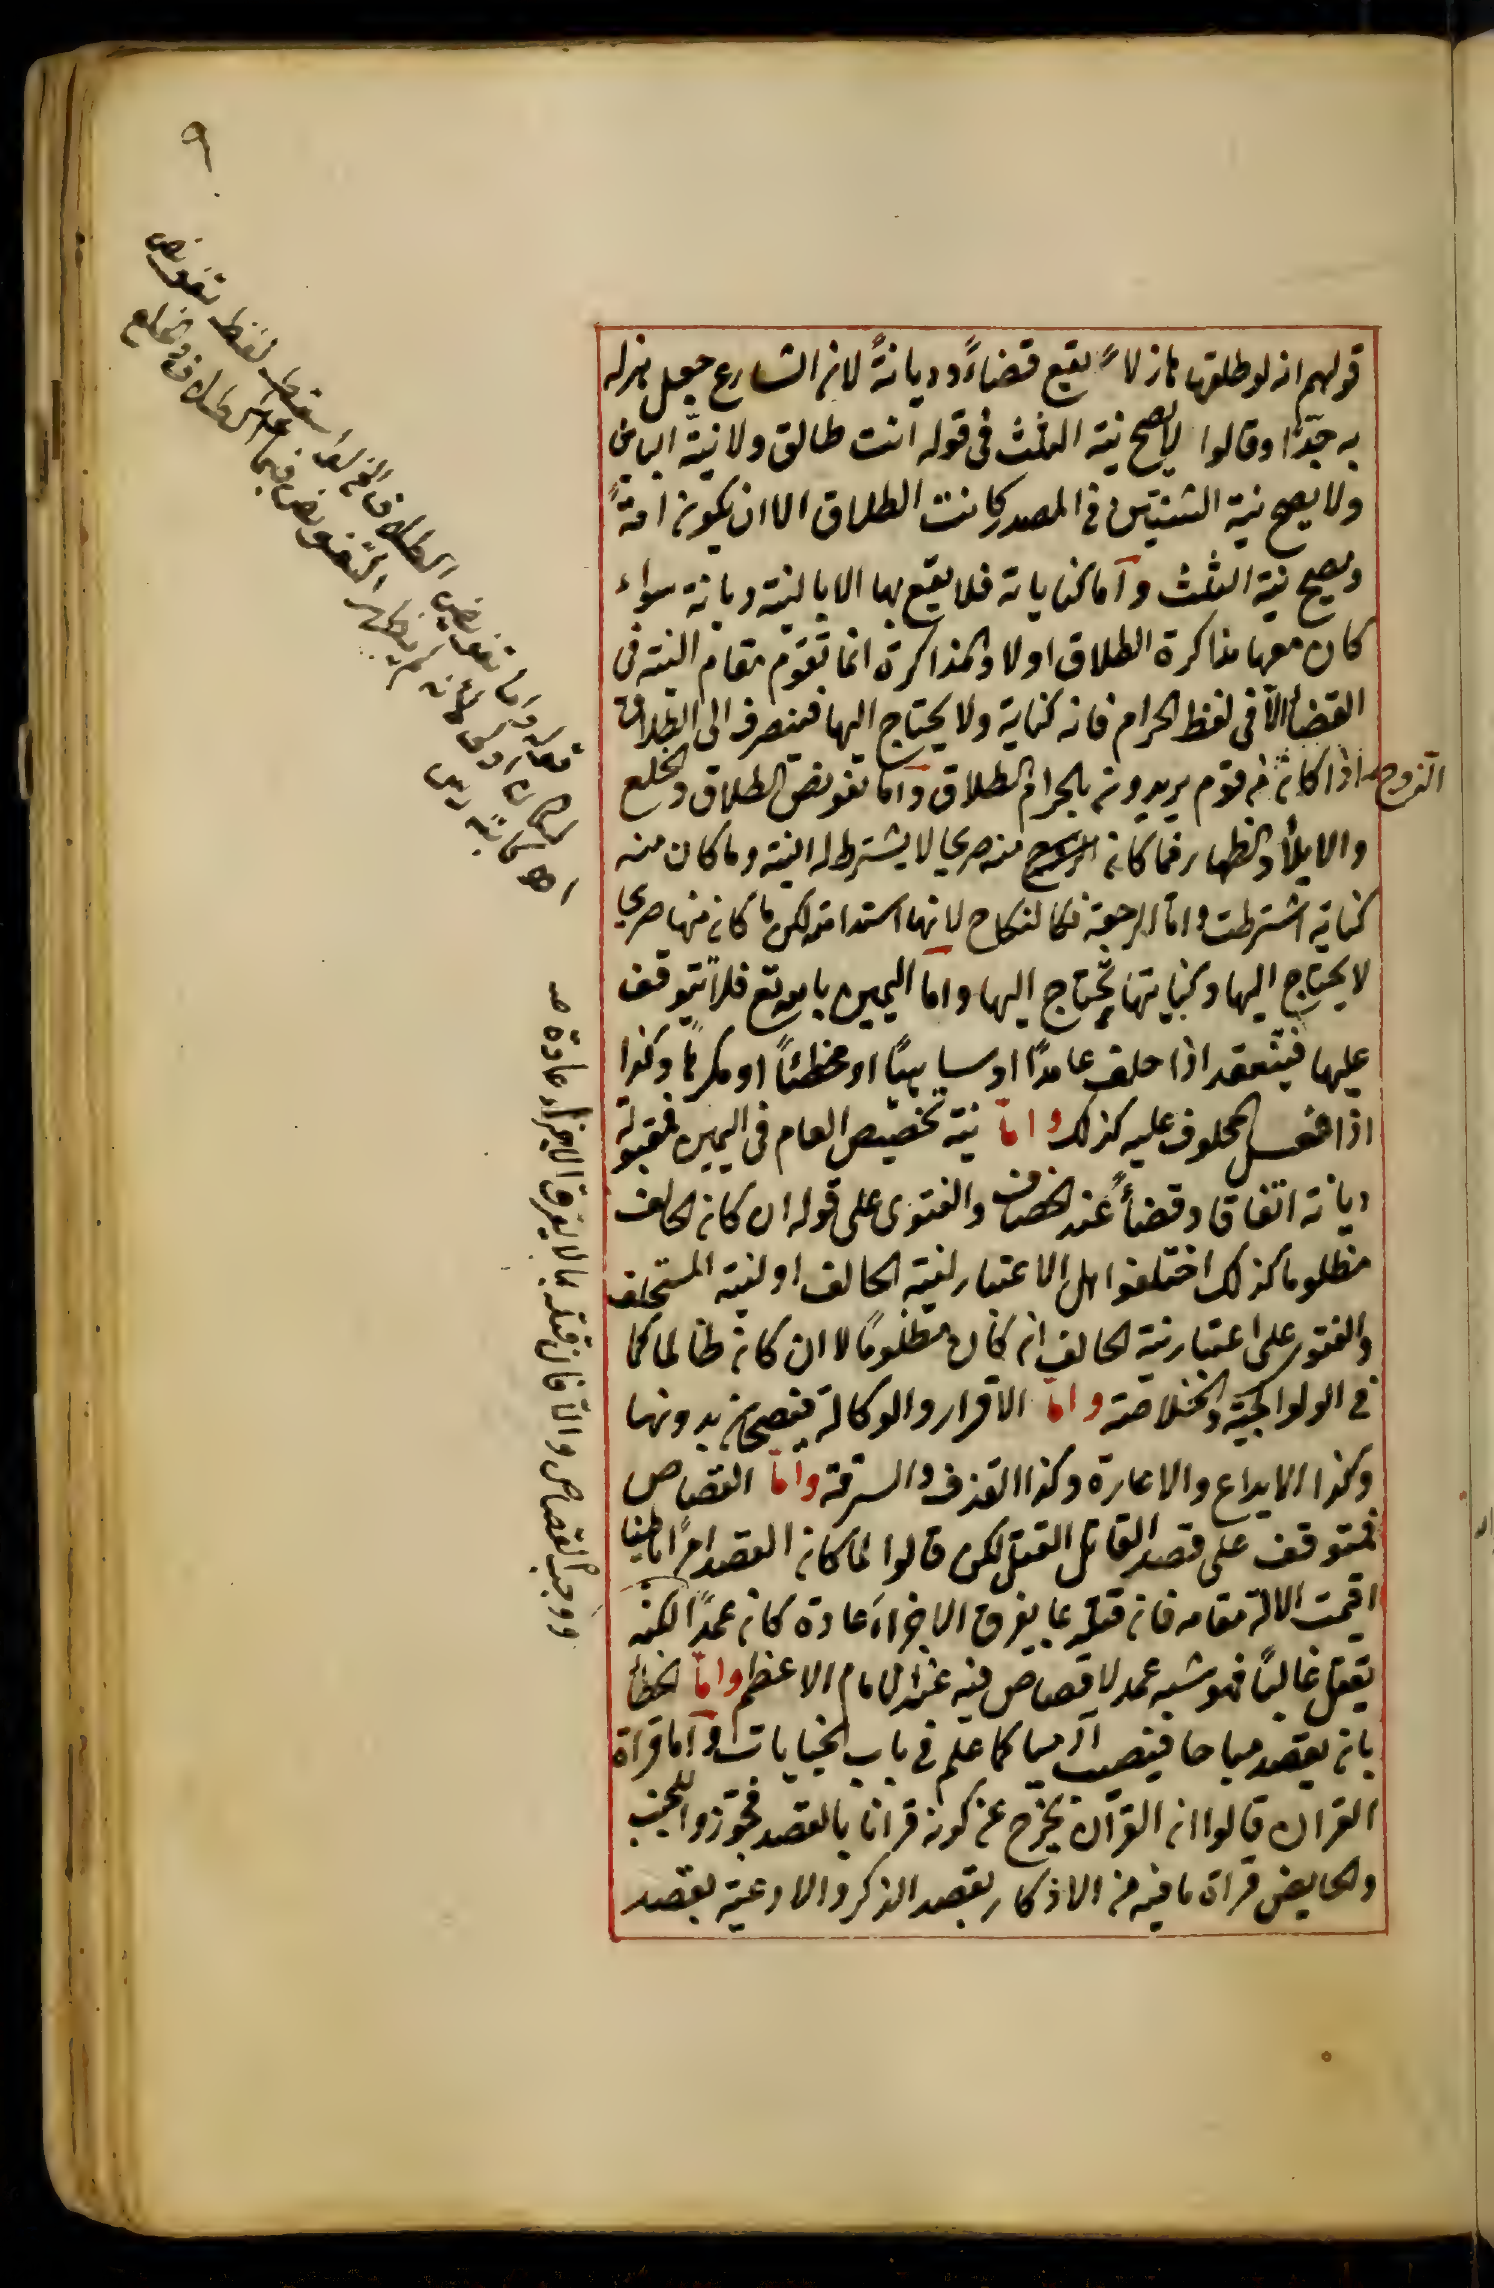 ٩
قولهم انه لو طلقها هازلاً يقع قضاءً وديانةً لان الشارع جعل هزله
به جدّا وقالوا لا يصح نية الثلث فى قوله انت طالق ولا نيّة الباين
ولا يصح نية الثنتين فى المصدر كانت الطلاق الا ان يكون امةً
ويصح نية الثلث وامّا كناياته فلا يقع بها الا بالنية ديانة سواء
كان معها مذاكرة الطلاق اولا والمذاكرة انما تقوم مقام النية فى
القضا الّا فى لفظ الحرام فانه كناية ولا يحتاج اليها فينصرف الى الطلاق
الزوج اذا كان من قوم يريدون بالحرام الطلاق وامّا تفويض الطلاق والخلع
والايلأ والظهار فما كان منه صريحا لا يشترط له النية وما كان منه
كناية اشترطت وامّا الرجعة فكالنكاح لانها استدامته لكن ما كان منها صريحا
لا يحتاج اليها وكنايتها تحتاج اليها وامّا اليمين بالله تع فلا يتوقف
عليها فينعقد اذا حلف عامدًا او ساهيًا او مخطئًا او مكرهًا وكذا
اذا فعل المحلوف عليه كذلك وامّا نية تخصيص العام فى اليمين فمقبولة
ديانة اتفاقا وقضأً عند الخصاف والفتوى على قوله ان كان الحالف
مظلوما كذلك اختلفوا هل الاعتبار لنية الحالف او لنية المستحلف
والفتوى على اعتبار نية الحالف ان كان مظلومًا لا ان كان ظالما كما
فى الولوالجية والخلاصة وامّا الاقرار والوكالة فيصحان بدونها
وكذا الايداع والاعارة وكذا القذف والسرقة وامّا القصاص
فمتوقف على قصد القاتل القتل لكن قالوا لما كان القصد امرًا باطنيا
اقيمت الالة مقامه فان قتله بما يفرق الاجزاء عادة كان عمدًا لكنه
يقتل غالبًا فهو شبه عمد لا قصاص فيه عند الامام الاعظم وامّا الخطأ
بان يقصد مباحا فيصيب آدميا كما علم فى باب الجنايات وامّا قراة
القران قالوا ان القرآن يخرج عن كونه قرانا بالقصد فجوّزوا للجنب
والحايض قراة ما فيه من الاذكار بقصد الذكر والادعية بقصد
ووجب القصاص والّا فان قتله بما لا يفرق الاجزاء عادة صـ